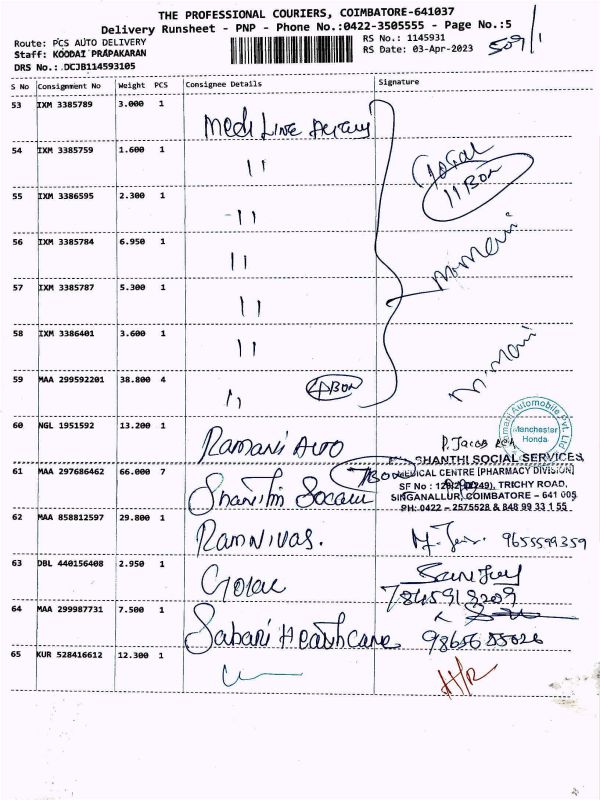 THE PROFESSIONAL COURIERS, COIMBATORE-641037
Delivery Runsheet - PNP - Phone No.:0422-3505555 - Page No.:5
Route: PCS AUTO DELIVERY
RS No.: 1145931
Staff: KOODAI PRAPAKARAN
RS Date: 03-Apr-2023
509/1
DRS No.: DCJB114593105
S No Consignment No Weight PCS Consignee Details Signature
53 IXM 3385789 3.000 1
54 IXM 3385759 1.600 1 "
Total
11 Box
55 IXM 3386595 2.300 1 - "
56 IXM 3385784 6.950 1 "
M. Mani
57 IXM 3385787 5.300 1 "
58 IXM 3386401 3.600 1 "
M. Mani
59 MAA 299592201 38.800 4 " 4 Box
60 NGL 1951592 13.200 1 Ramani Auto
Ramani Automobile Pvt. Ltd
Manchester
Honda
61 MAA 297686462 66.000 7 Shanthi Socail 7 Box
SHANTHI SOCIAL SERVICES
MEDICAL CENTRE [PHARMACY DIVISION]
TRICHY ROAD,
SINGANALLUR, COIMBATORE - 641 005
PH: 0422 - 2575528 & 848 99 33 1 55
62 MAA 858812597 29.800 1 Ramnivas. 9655599359
63 DBL 440156408 2.950 1
64 MAA 299987731 7.500 1 Sabari Healthcare
65 KUR 528416612 12.300 1
H/R